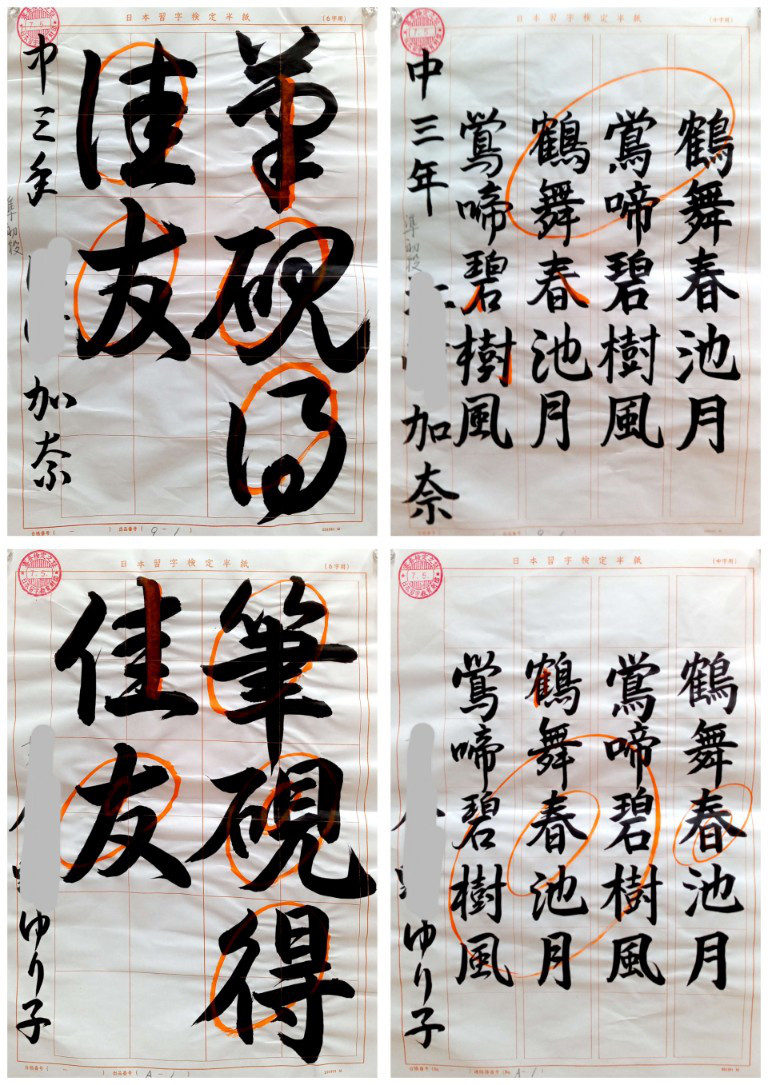 日本習字検定半紙
(6字用)
筆硯得
佳友
中三年
準初段
加奈
日本習字検定半紙
(中字用)
鶴舞春池月
鶯啼碧樹風
鶴舞春池月
鶯啼碧樹風
中三年
準初段
加奈
日本習字検定半紙
(6字用)
筆硯得
佳友
ゆり子
日本習字検定半紙
(中字用)
鶴舞春池月
鶯啼碧樹風
鶴舞春池月
鶯啼碧樹風
ゆり子